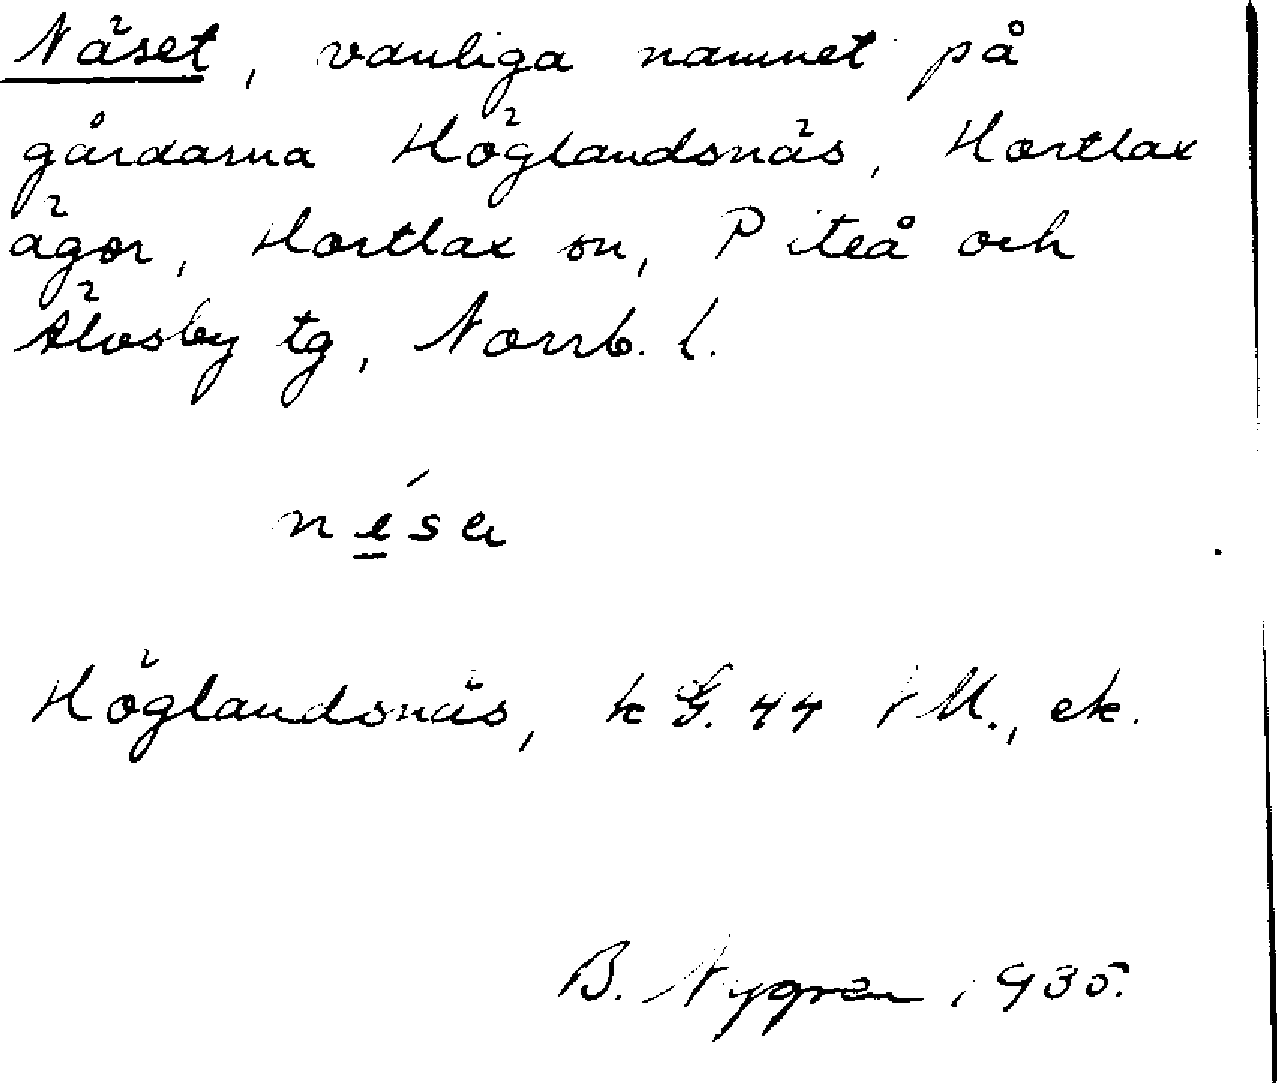 Näset, vanliga namnet på
gårdarna Höglandsnäs, Hortlax
ägor, Hortlax sn, Piteå och
Älvsby tg, Norrb. l.
Höglandsnäs, k G. 44 M., ek.
B. Nygren 1935.